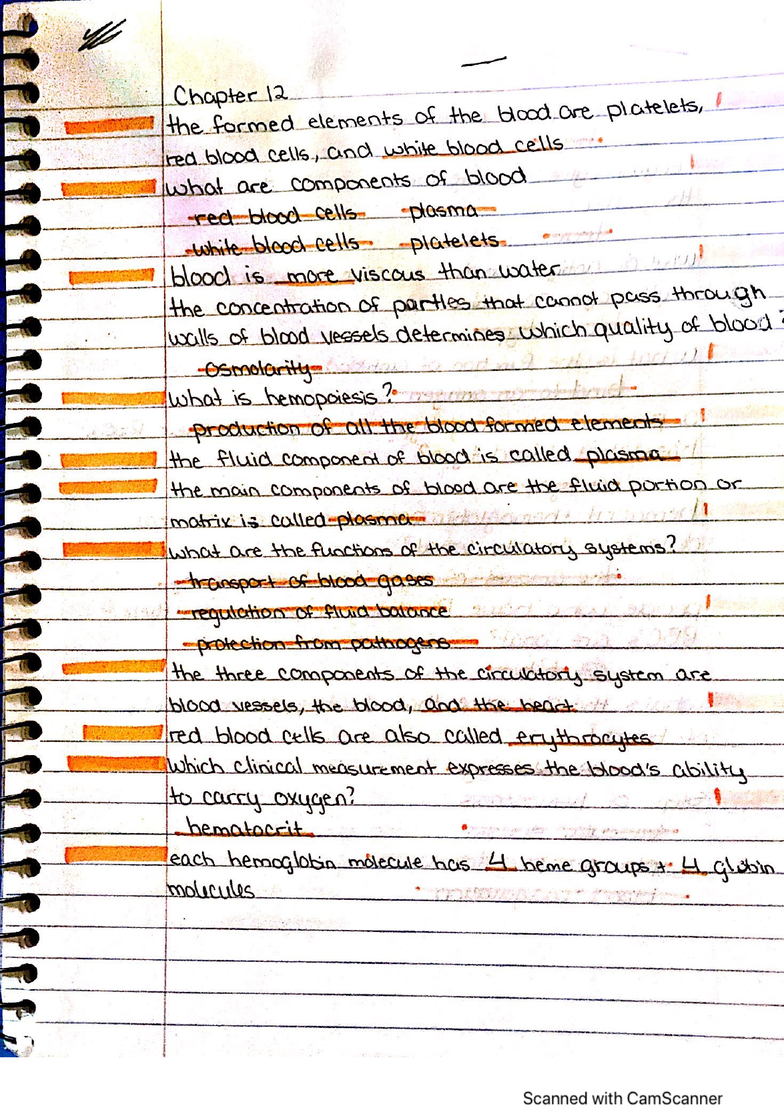 Chapter 12
the formed elements of the blood are platelets,
red blood cells, and white blood cells
what are components of blood
red blood cells plasma
white blood cells platelets
blood is more viscous than water
the concentration of partles that cannot pass through
walls of blood vessels determines which quality of blood?
osmolarity
what is hemopoiesis?
production of all the blood formed elements
the fluid component of blood is called plasma
the main components of blood are the fluid portion or
matrix is called plasma
what are the functions of the circulatory systems?
transport of blood gases
regulation of fluid balance
protection from pathogens
the three components of the circulatory system are
blood vessels, the blood, and the heart
red blood cells are also called erythrocytes
which clinical measurement expresses the blood's ability
to carry oxygen?
hematocrit
each hemoglobin molecule has 4 heme groups + 4 globin
molecules
Scanned with CamScanner